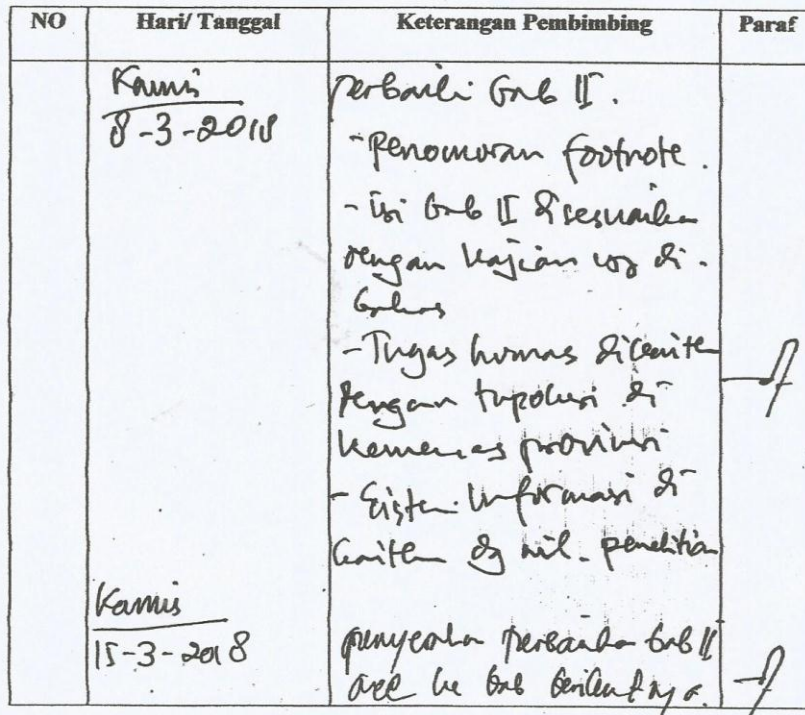 NO Hari/ Tanggal Keterangan Pembimbing Paraf
Kamis perbaiki bab II.
8-3-2018
- Penomoran footnote.
- isi bab II disesuaikan
dengan kajian yg di-
bahas
- Tugas humas dikaitkan
dengan tupoksi di
kemenag provinsi
- Sistem informasi di
kaitkan dg penelitian
Kamis
15-3-2018 penyerahan perbaikan bab II
acc ke bab berikutnya.